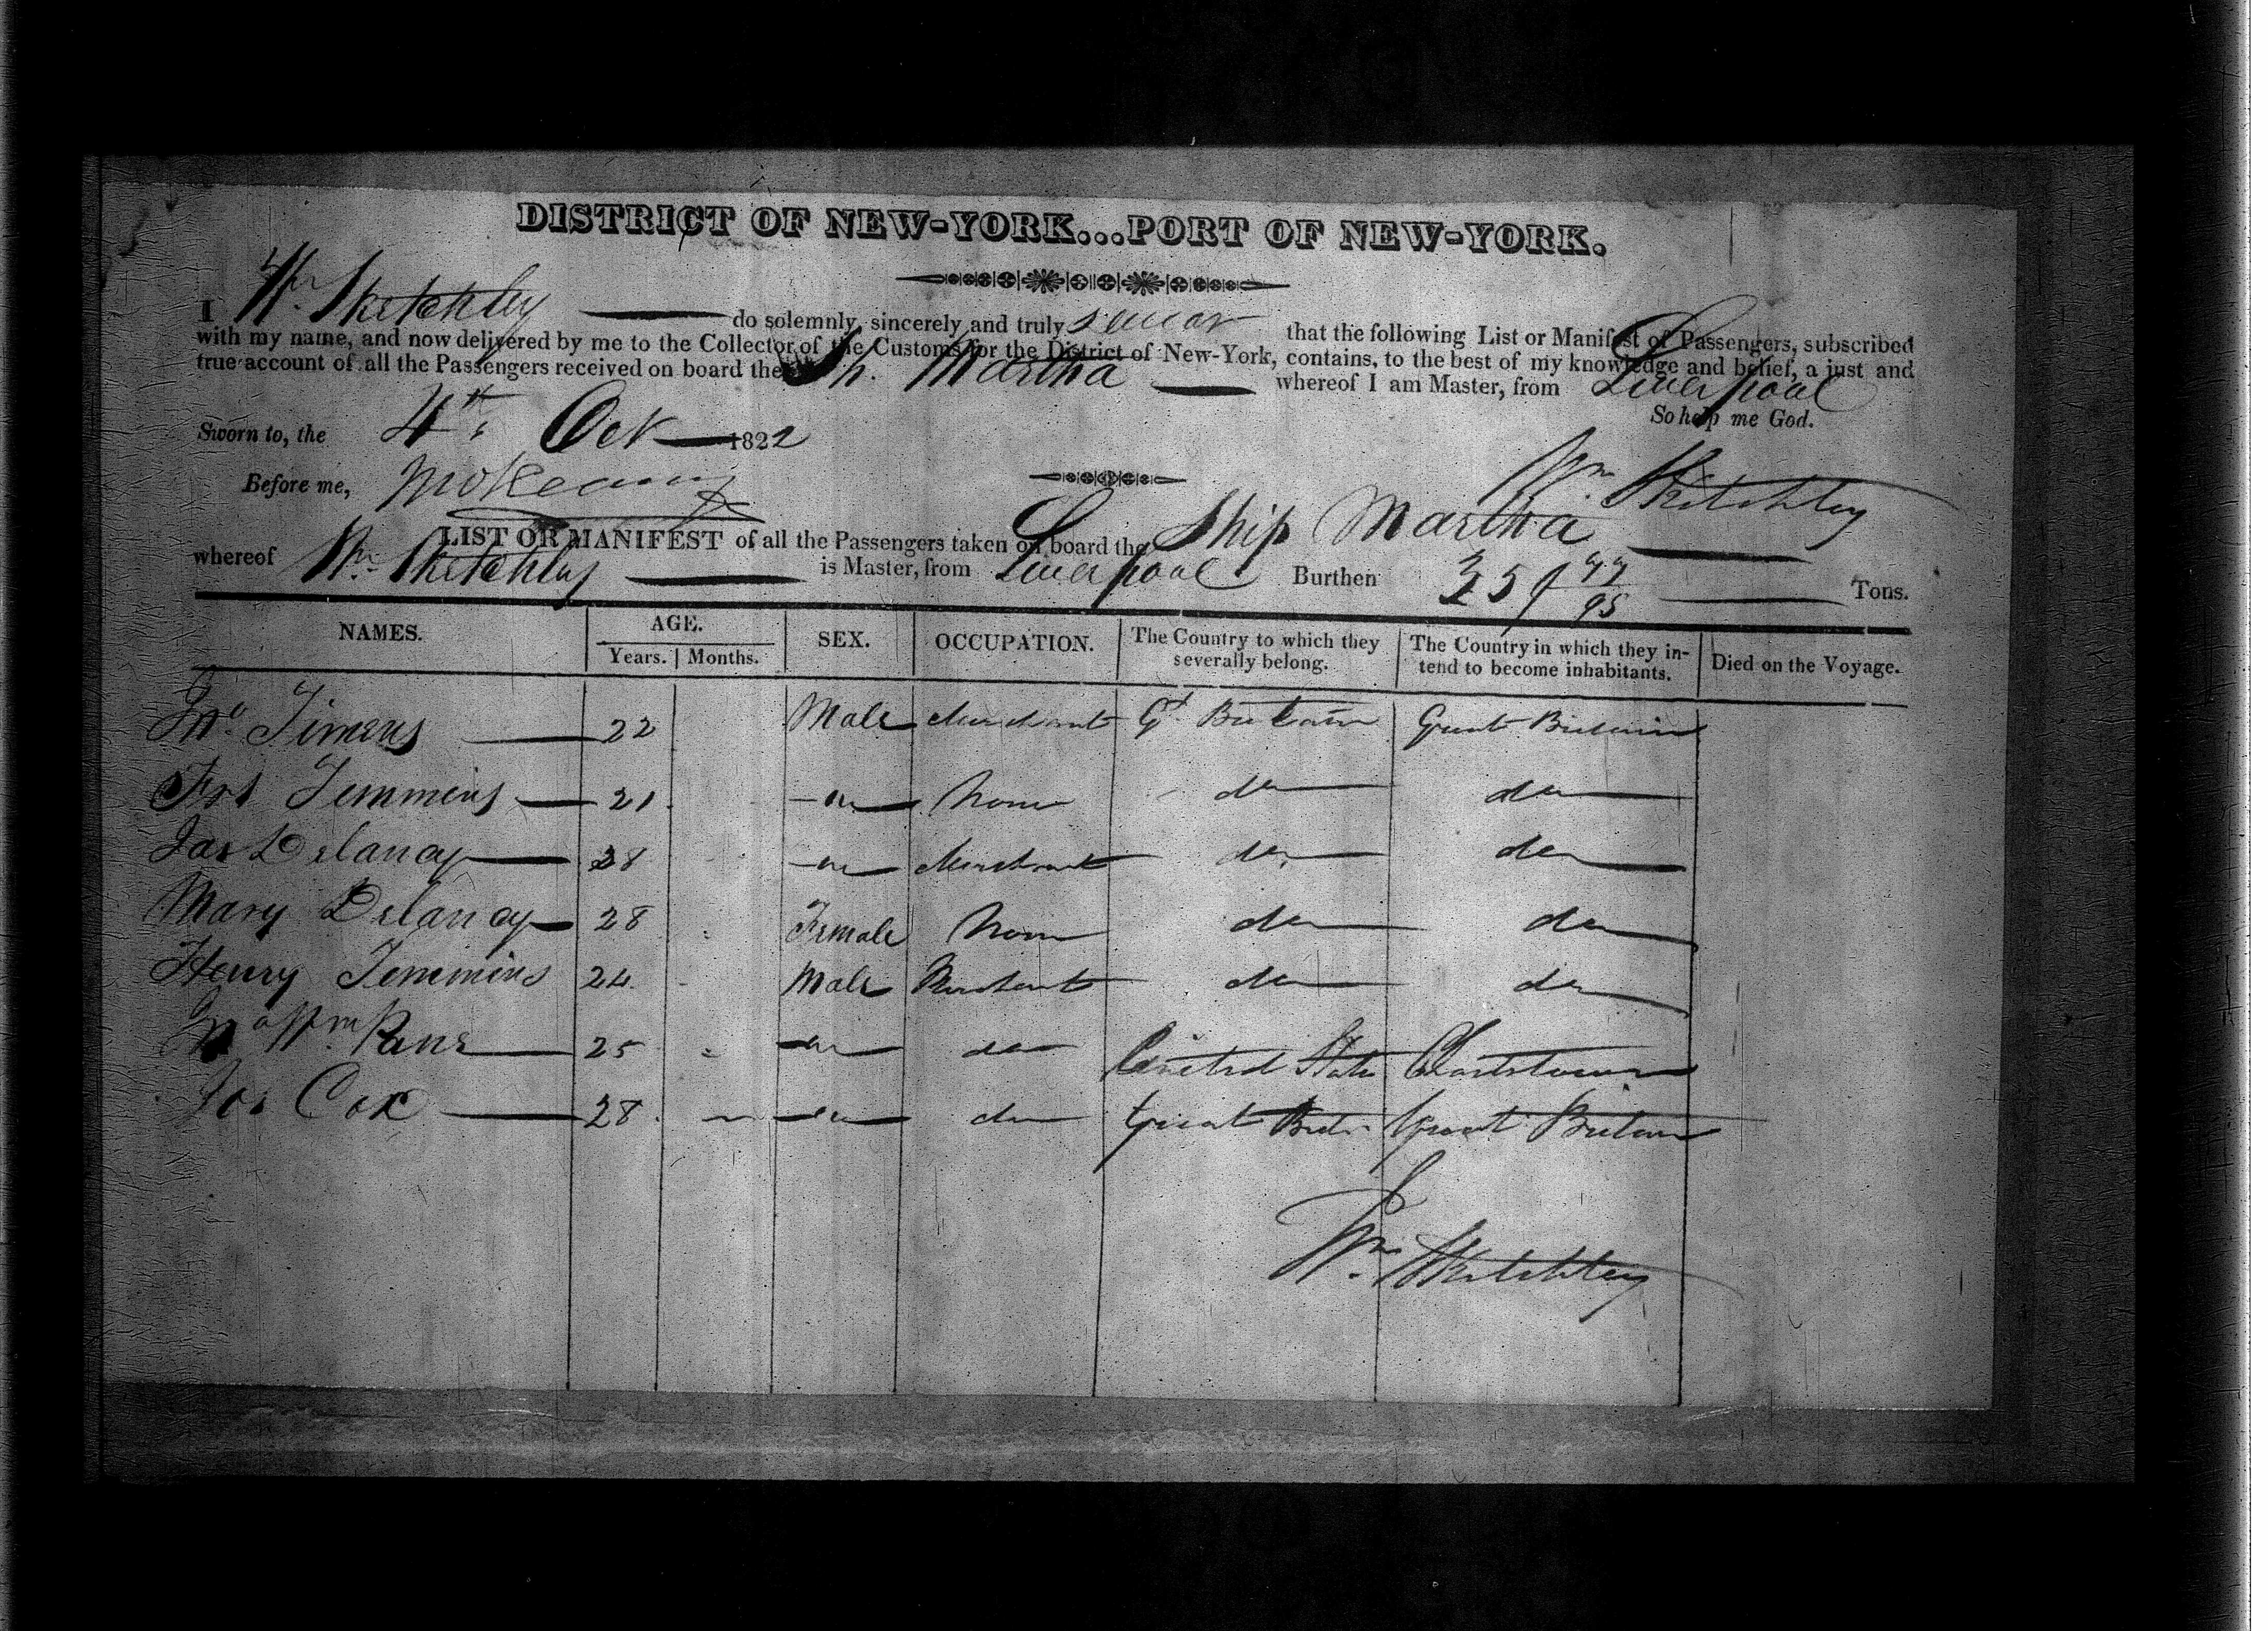 DISTRICT OF NEW-YORK...PORT OF NEW-YORK.
I Wm Sketchley do solemnly, sincerely and truly swear that the following List or Manifest of Passengers, subscribed
with my name, and now delivered by me to the Collector of the Customs for the District of New-York, contains, to the best of my knowledge and belief, a just and
true account of all the Passengers received on board the Sh. Martha whereof I am Master, from Liverpool
So help me God.
Sworn to, the 4th Oct 1822
Before me,
Wm Sketchley
LIST OR MANIFEST of all the Passengers taken on board the Ship Martha
whereof Wm Sketchley is Master, from Liverpool Burthen Tons.
NAMES. AGE. SEX. OCCUPATION. The Country to which they severally belong. The Country in which they intend to become inhabitants. Died on the Voyage.
Years. Months.
Jno. Timens 22 Male Merchant Gt. Britain Great Britain
Frs Temmins 21 None do do
Jas Delanoy 28 Merchant do do
Mary Delanoy 28 Female None do do
Henry Temmins 24 Male Merchant do do
Wm. 25 do United State Charlstown
Jos Cox 28 do Great Brit. Great Britain
Wm. Sketchley